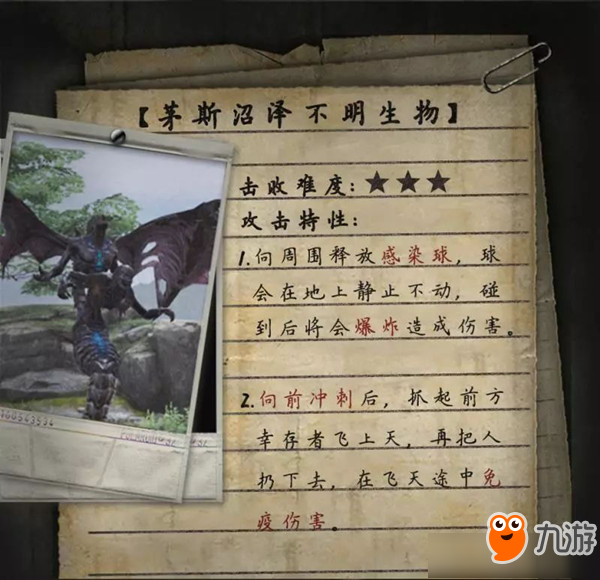 【茅斯沼泽不明生物】
击败难度:★★★
攻击特性:
1.向周围释放感染球，球
会在地上静止不动，碰
到后将会爆炸造成伤害。
2.向前冲刺后，抓起前方
幸存者飞上天，再把人
扔下去，在飞天途中免
疫伤害。
九游